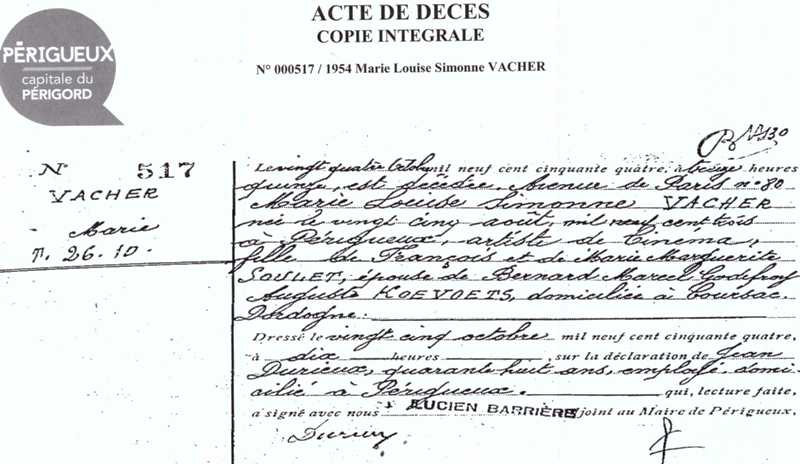 PÉRIGUEUX
capitale du
PÉRIGORD
ACTE DE DECES
COPIE INTEGRALE
N° 000517 / 1954 Marie Louise Simonne VACHER
N° 517
VACHER
Marie
T. 26.10.
Le vingt quatre octobre mil neuf cent cinquante quatre, à treize heures
quinze, est décédée, Avenue de Paris n° 80
Marie Louise Simonne VACHER
née le vingt cinq août, mil neuf cent trois
à Périgueux, artiste de Cinéma,
fille de François et de Marie Marguerite
SOULET, épouse de Bernard Marcel Godefroy
Auguste KOEVOETS, domiciliée à Coursac.
Dordogne.
Dressé le vingt cinq octobre mil neuf cent cinquante quatre,
à dix heures, sur la déclaration de Jean
Durieux, quarante huit ans, employé domi-
cilié à Périgueux. qui, lecture faite,
a signé avec nous LUCIEN BARRIÈRE adjoint au Maire de Périgueux.